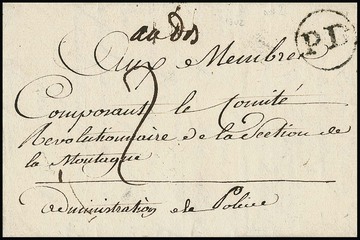 au dos
P.P.
Aux Membres
Composant le Comité
Revolutionnaire de la Section de
la Montagne
2
administration de Police